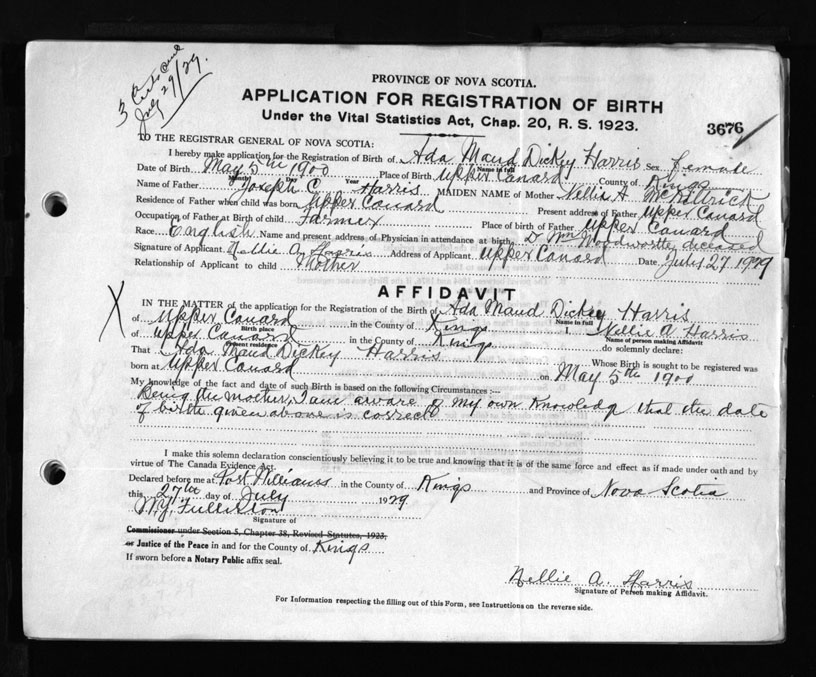 3 Certs and
July 29/29.
PROVINCE OF NOVA SCOTIA.
APPLICATION FOR REGISTRATION OF BIRTH
Under the Vital Statistics Act, Chap. 20, R. S. 1923.
3676
TO THE REGISTRAR GENERAL OF NOVA SCOTIA:
I hereby make application for the Registration of Birth of Ada Maud Dickey Harris Sex Female
Name in full
Date of Birth May 5th 1900 Place of Birth Upper Canard County of Kings
Month Day Year
Name of Father Joseph C. Harris MAIDEN NAME of Mother Nellie A
Residence of Father when child was born Upper Canard Present address of Father Upper Canard
Occupation of Father at Birth of child Farmer Place of birth of Father Upper Canard
Race English Name and present address of Physician in attendance at birth Dr Wm Woodworth, deceased
Signature of Applicant Nellie A. Harris Address of Applicant Upper Canard Date July 27 1929
Relationship of Applicant to child Mother
AFFIDAVIT
IN THE MATTER of the application for the Registration of the Birth of Ada Maud Dickey Harris
Name in full
of Upper Canard in the County of Kings I, Nellie A Harris
Birth place Name of person making Affidavit
of Upper Canard in the County of Kings do solemnly declare:
Present residence
That Ada Maud Dickey Harris Whose Birth is sought to be registered was
born at Upper Canard on May 5th 1900
My knowledge of the fact and date of such Birth is based on the following Circumstances :—
Being the mother, I am aware of my own knowledge that the date
of birth given above is correct
I make this solemn declaration conscientiously believing it to be true and knowing that it is of the same force and effect as if made under oath and by
virtue of The Canada Evidence Act.
Declared before me at Port Williams in the County of Kings and Province of Nova Scotia
this 27th day of July 1929
W.Y. Fullerton
Signature of
Commissioner under Section 5, Chapter 38, Revised Statutes, 1923,
or Justice of the Peace in and for the County of Kings
If sworn before a Notary Public affix seal.
Nellie A. Harris
Signature of Person making Affidavit.
For Information respecting the filling out of this Form, see Instructions on the reverse side.